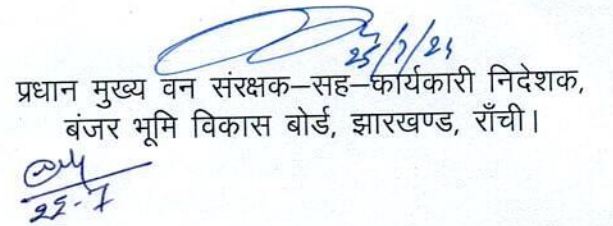 25/7/24
प्रधान मुख्य वन संरक्षक–सह–कार्यकारी निदेशक,
बंजर भूमि विकास बोर्ड, झारखण्ड, राँची।